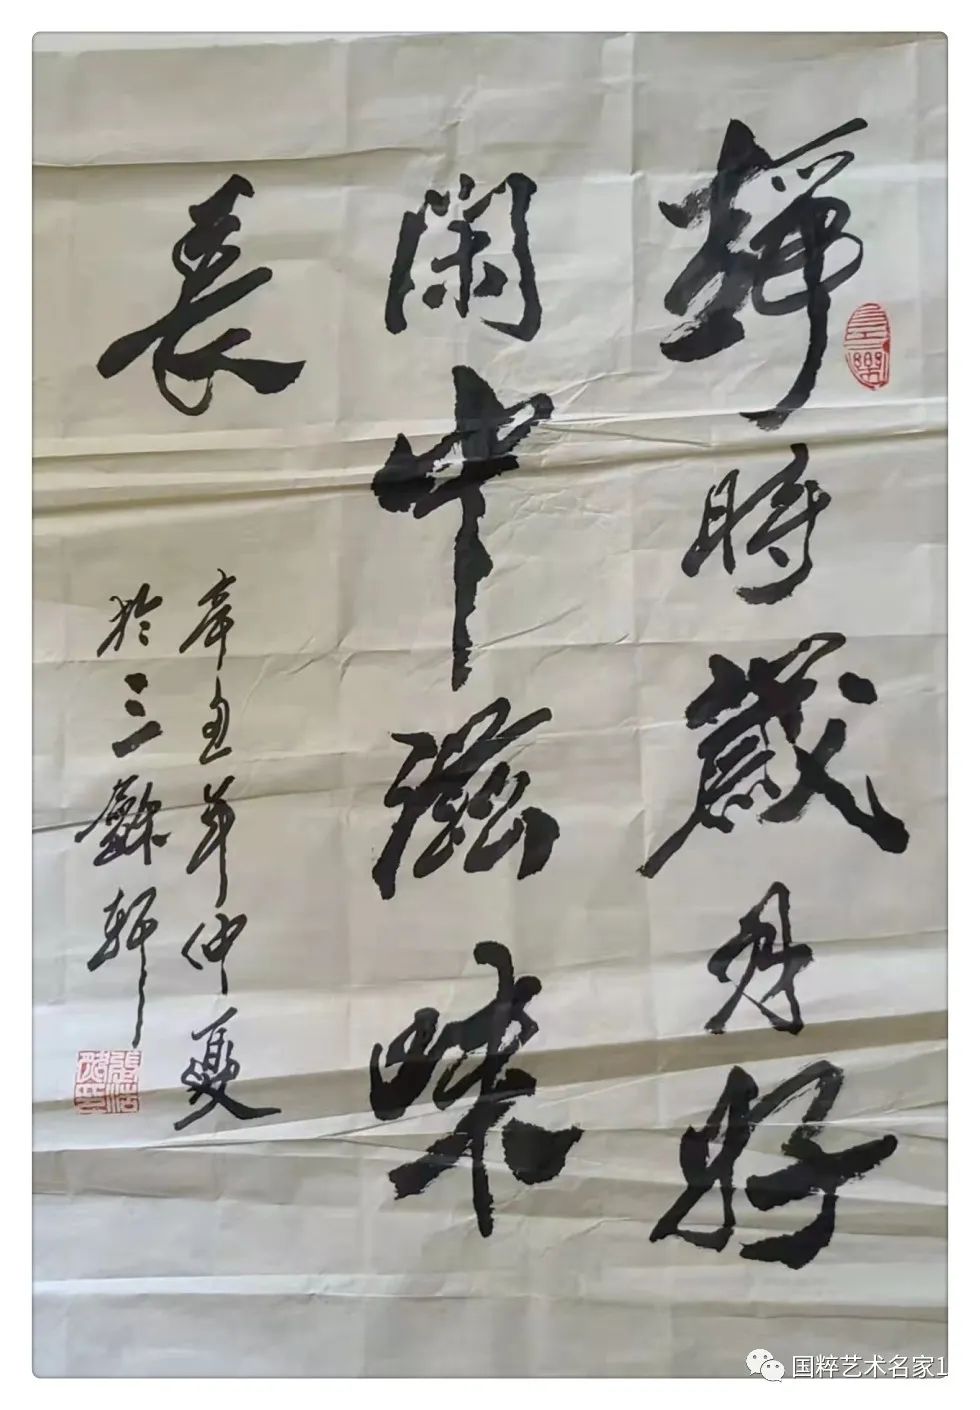 靜時歲月好
閑中滋味
長
辛丑年仲夏
於三蘇軒
国粹艺术名家1